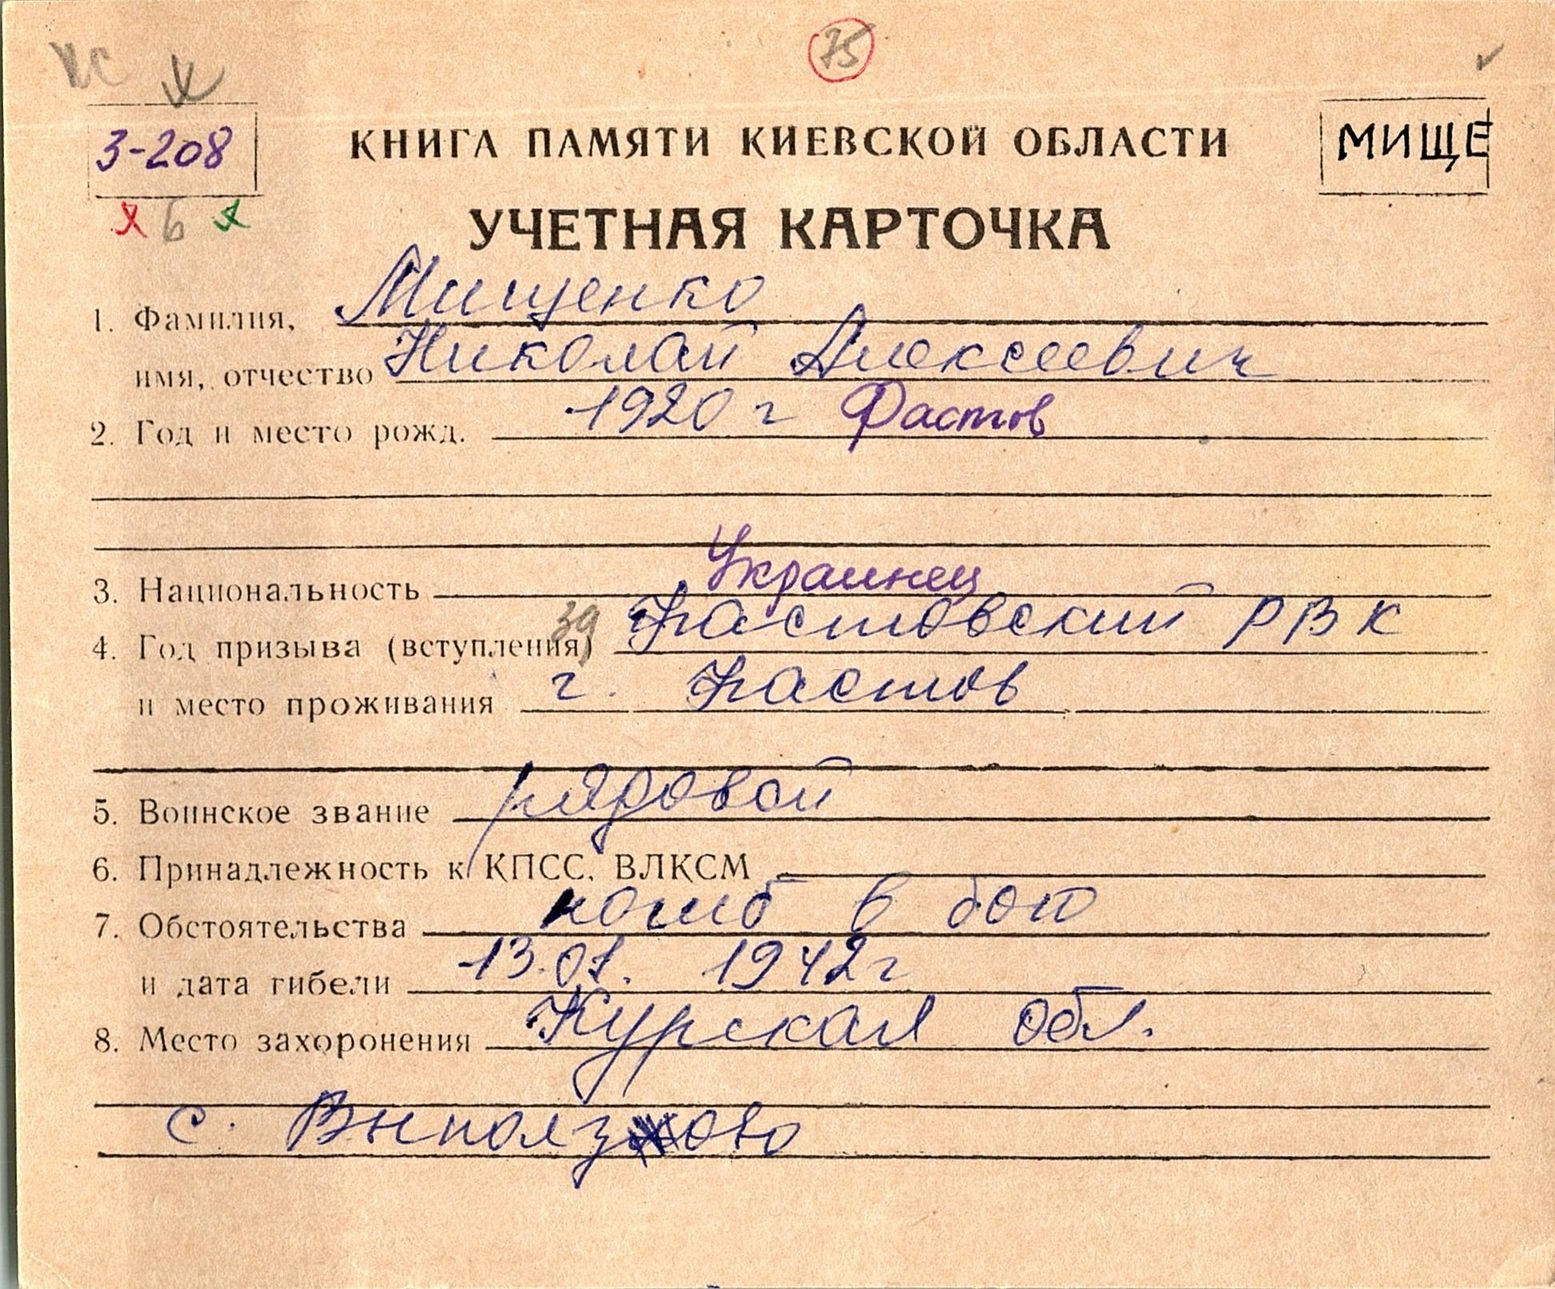 75
3-208
КНИГА ПАМЯТИ КИЕВСКОЙ ОБЛАСТИ
МИЩЕ
6
УЧЕТНАЯ КАРТОЧКА
1. Фамилия, Мищенко
имя, отчество Николай Алексеевич
2. Год и место рожд. 1920 г Фастов
3. Национальность Украинец
4. Год призыва (вступления) 39 Фастовский РВК
и место проживания г. Фастов
5. Воинское звание рядовой
6. Принадлежность к КПСС, ВЛКСМ
7. Обстоятельства погиб в бою
и дата гибели 13.01. 1942 г
8. Место захоронения Курская обл.
с. Выползово